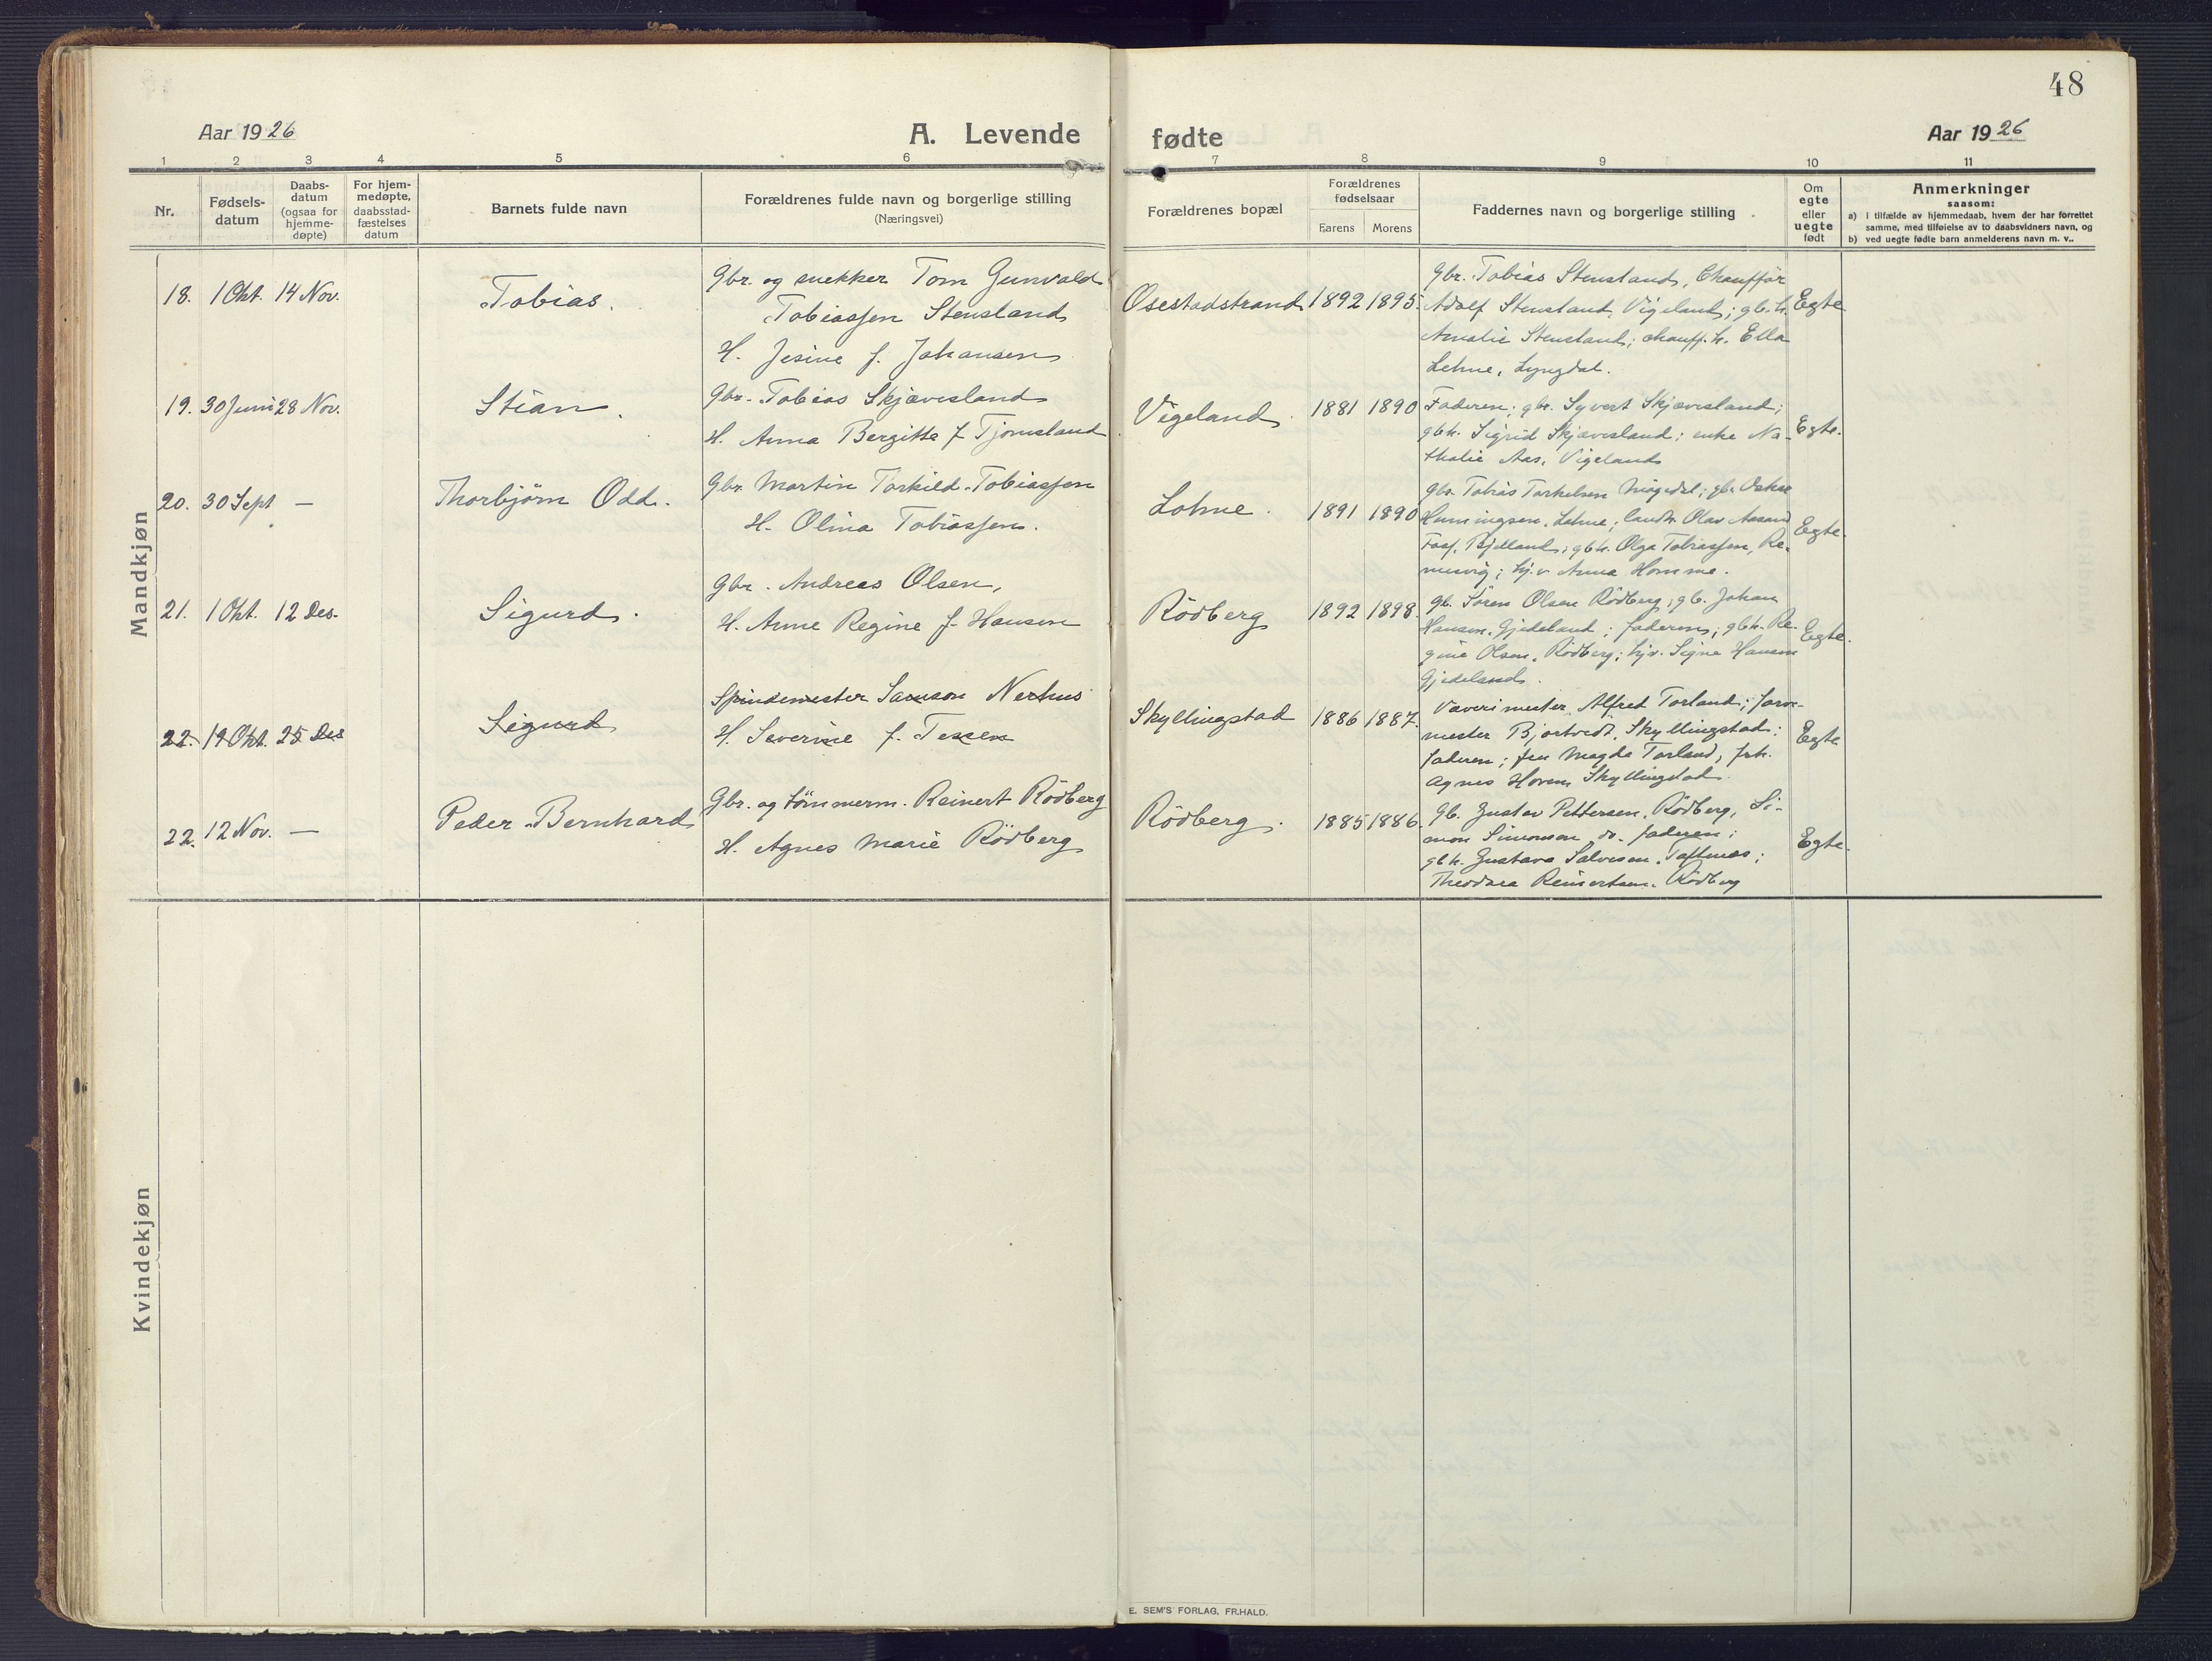 48
Aar 1926
A. Levende fødte
Aar 1926
1 2 3 4 5 6 7 8 9 10 11
Nr.
Fødsels-
datum
Daabs-
datum
(ogsaa for
hjemme-
døpte)
For hjem-
medøpte,
daabsstad-
fæstelses
datum
Barnets fulde navn
Forældrenes fulde navn og borgerlige stilling
(Næringsvei)
Forældrenes bopæl
Forældrenes
fødselsaar
Farens Morens
Faddernes navn og borgerlige stilling
Om
egte
eller
uegte
født
Anmerkninger
saasom:
a) i tilfælde av hjemmedaab, hvem der har forrettet
samme, med tilføielse av to daabsvidners navn, og
b) ved uegte fødte barn anmelderens navn m. v..
Mandkjøn
18. 1 Okt. 14 Nov.
Tobias.
Gbr. og snekker Tom Gunvald
Tobiassen Stensland
H. Jesine f. Johansen
Osestadstrand 1892 1895.
Gbr. Tobias Stensland, Chauffør
Adolf Stensland, Vigeland; gb.h.
Amalie Stensland; chauff.h. Ella
Lehne, Lyngdal.
Egte.
19. 30 Juni 28 Nov.
Stian.
Gbr. Tobias Skjævesland
H. Anna Bergitte f. Tjomsland
Vigeland. 1881 1890
Faderen; gbr. Syvert Skjævesland;
gbh. Sigrid Skjævesland; enke Na-
thalie Aas, Vigeland
Egte.
20. 30 Sept —
Thorbjörn Odd.
Gbr. Martin Torkild Tobiassen
H. Olina Tobiassen.
Lohne. 1891 1890
Gbr. Tobias Torkelsen
Henningsen, Lehne; Olav Aasand
Bjelland; gbh. Olga Tobiassen, Re-
mesvig; hj.v. Anna Homme.
Egte.
21. 1 Okt. 12 Des.
Sigurd.
Gbr. Andreas Olsen,
H. Anne Regine f. Hansen
Rödberg 1892 1898.
Gb. Sören Olsen Rödberg; gb. Johan
Hansen, Gjedeland; faderen; gbh. Re-
gine Olsen, Rödberg; hjv. Signe Hansen
Gjedeland.
Egte.
22. 19 Okt. 25 Des
Sigurd
Spindemester Samson Nerhus
H. Severine f. Tessen
Skyllingstad 1886 1887.
Væverimester Alfred Torland; farv-
mester Bjortvedt, Skyllingstad;
faderen; fru Magda Torland, frk.
Agnes Hoven Skyllingstad.
Egte
22. 12 Nov. —
Peder Bernhard
Gbr. og tömmerm. Reinert Rödberg
H. Agnes Marie Rödberg
Rödberg. 1885 1886.
Gb. Gustav Pettersen, Rödberg, Si-
mon Simonsen do. faderen;
gbh. Gustava Salvesen,
Theodora Reinertsen, Rödberg
Egte.
Kvindekjøn
E. SEM'S FORLAG, FR.HALD.